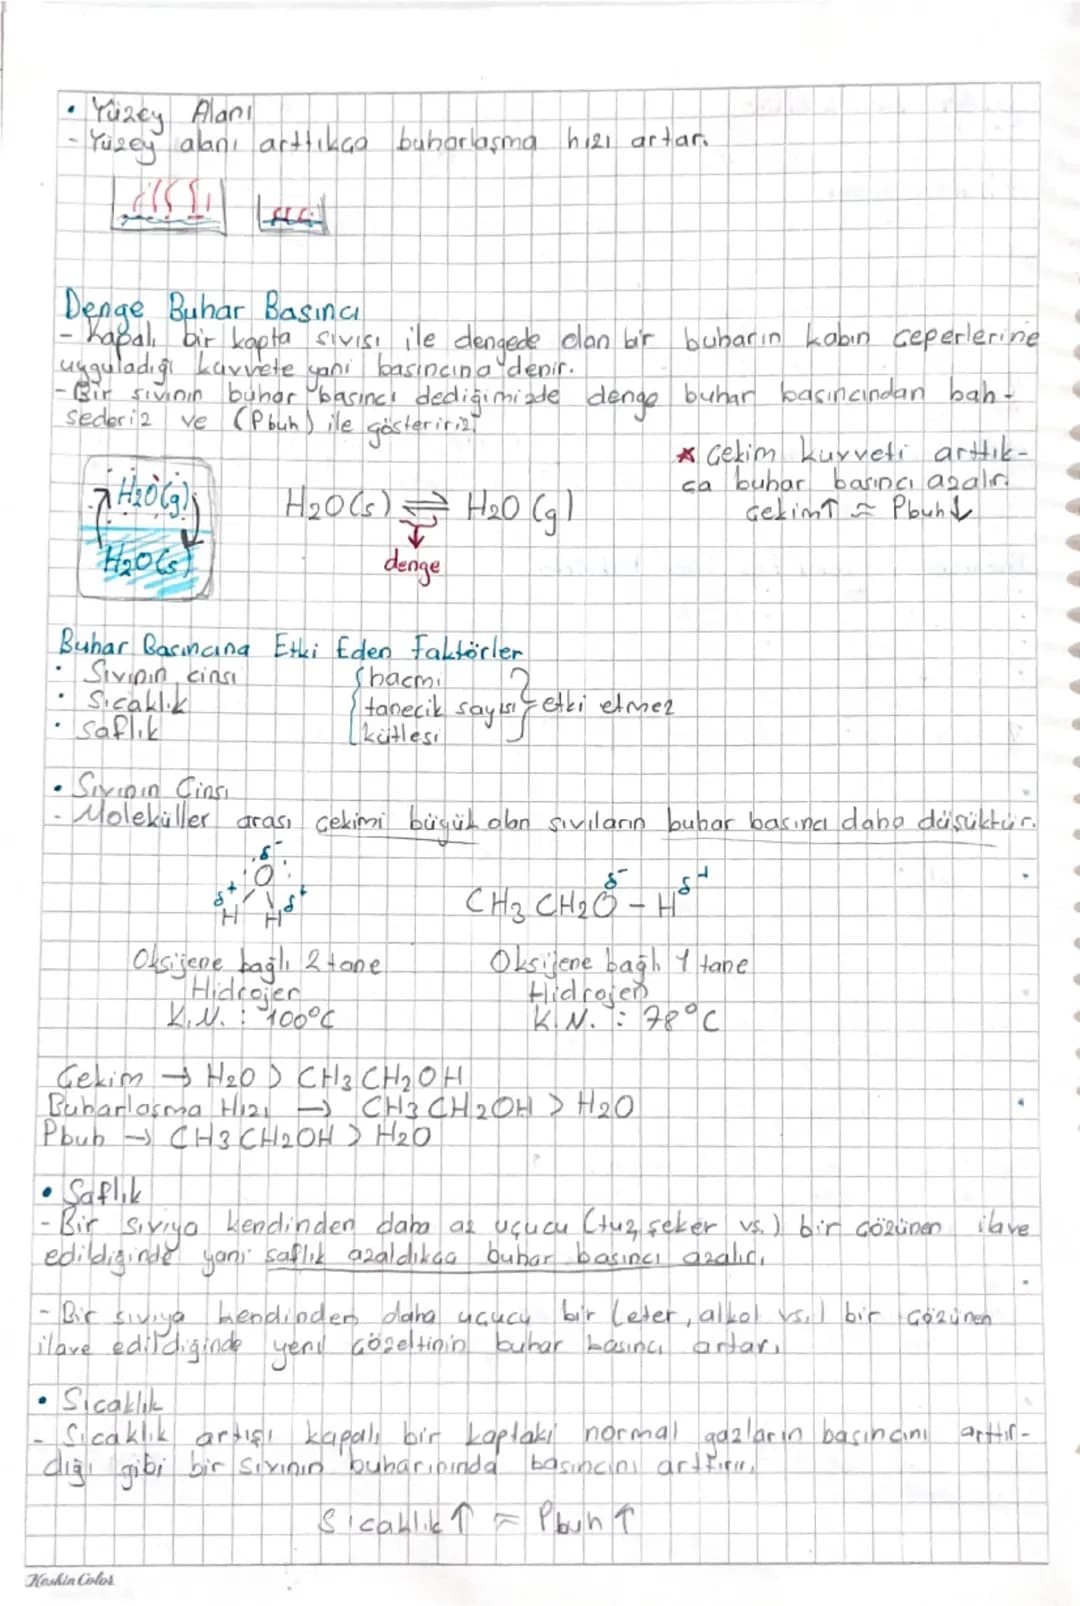 • Yüzey Alanı
- Yüzey alanı arttıkça buharlaşma hızı artar.
Denge Buhar Basıncı
- Kapalı bir kapta sıvısı ile dengede olan bir buharın kabın çeperlerine
uyguladığı kuvvete yani basıncına denir.
- Bir sıvının buhar basıncı dediğimizde denge buhar basıncından bah-
sederiz ve (Pbuh) ile gösteririz.
* Çekim kuvveti arttık-
ça buhar basıncı azalır.
Çekim↑ ≈ Pbuh↓
H2O(g)
H2O(s)
H2O(s) ⇌ H2O (g)
denge
Buhar Basıncına Etki Eden Faktörler
• Sıvının cinsi
• Sıcaklık
• Saflık
{ hacmi
tanecik sayısı
kütlesi } etki etmez
• Sıvının Cinsi
- Moleküller arası çekimi büyük olan sıvıların buhar basıncı daha düşüktür.
δ-
O
δ+ δ+
H H
CH3CH2O - H
δ- δ+
Oksijene bağlı 2 tane
Hidrojen
K.N. : 100°C
Oksijene bağlı 1 tane
Hidrojen
K.N. : 78°C
Çekim → H2O > CH3CH2OH
Buharlaşma Hızı → CH3CH2OH > H2O
Pbuh → CH3CH2OH > H2O
• Saflık
- Bir sıvıya kendinden daha az uçucu (tuz, şeker vs.) bir çözünen ilave
edildiğinde yani saflık azaldıkça buhar basıncı azalır.
- Bir sıvıya kendinden daha uçucu bir (eter, alkol vs.) bir çözünen
ilave edildiğinde yeni çözeltinin buhar basıncı artar.
• Sıcaklık
- Sıcaklık artışı kapalı bir kaptaki normal gazların basıncını arttır-
dığı gibi bir sıvının buharınında basıncını arttırır.
Sıcaklık↑ ≈ Pbuh↑
Keskin Color